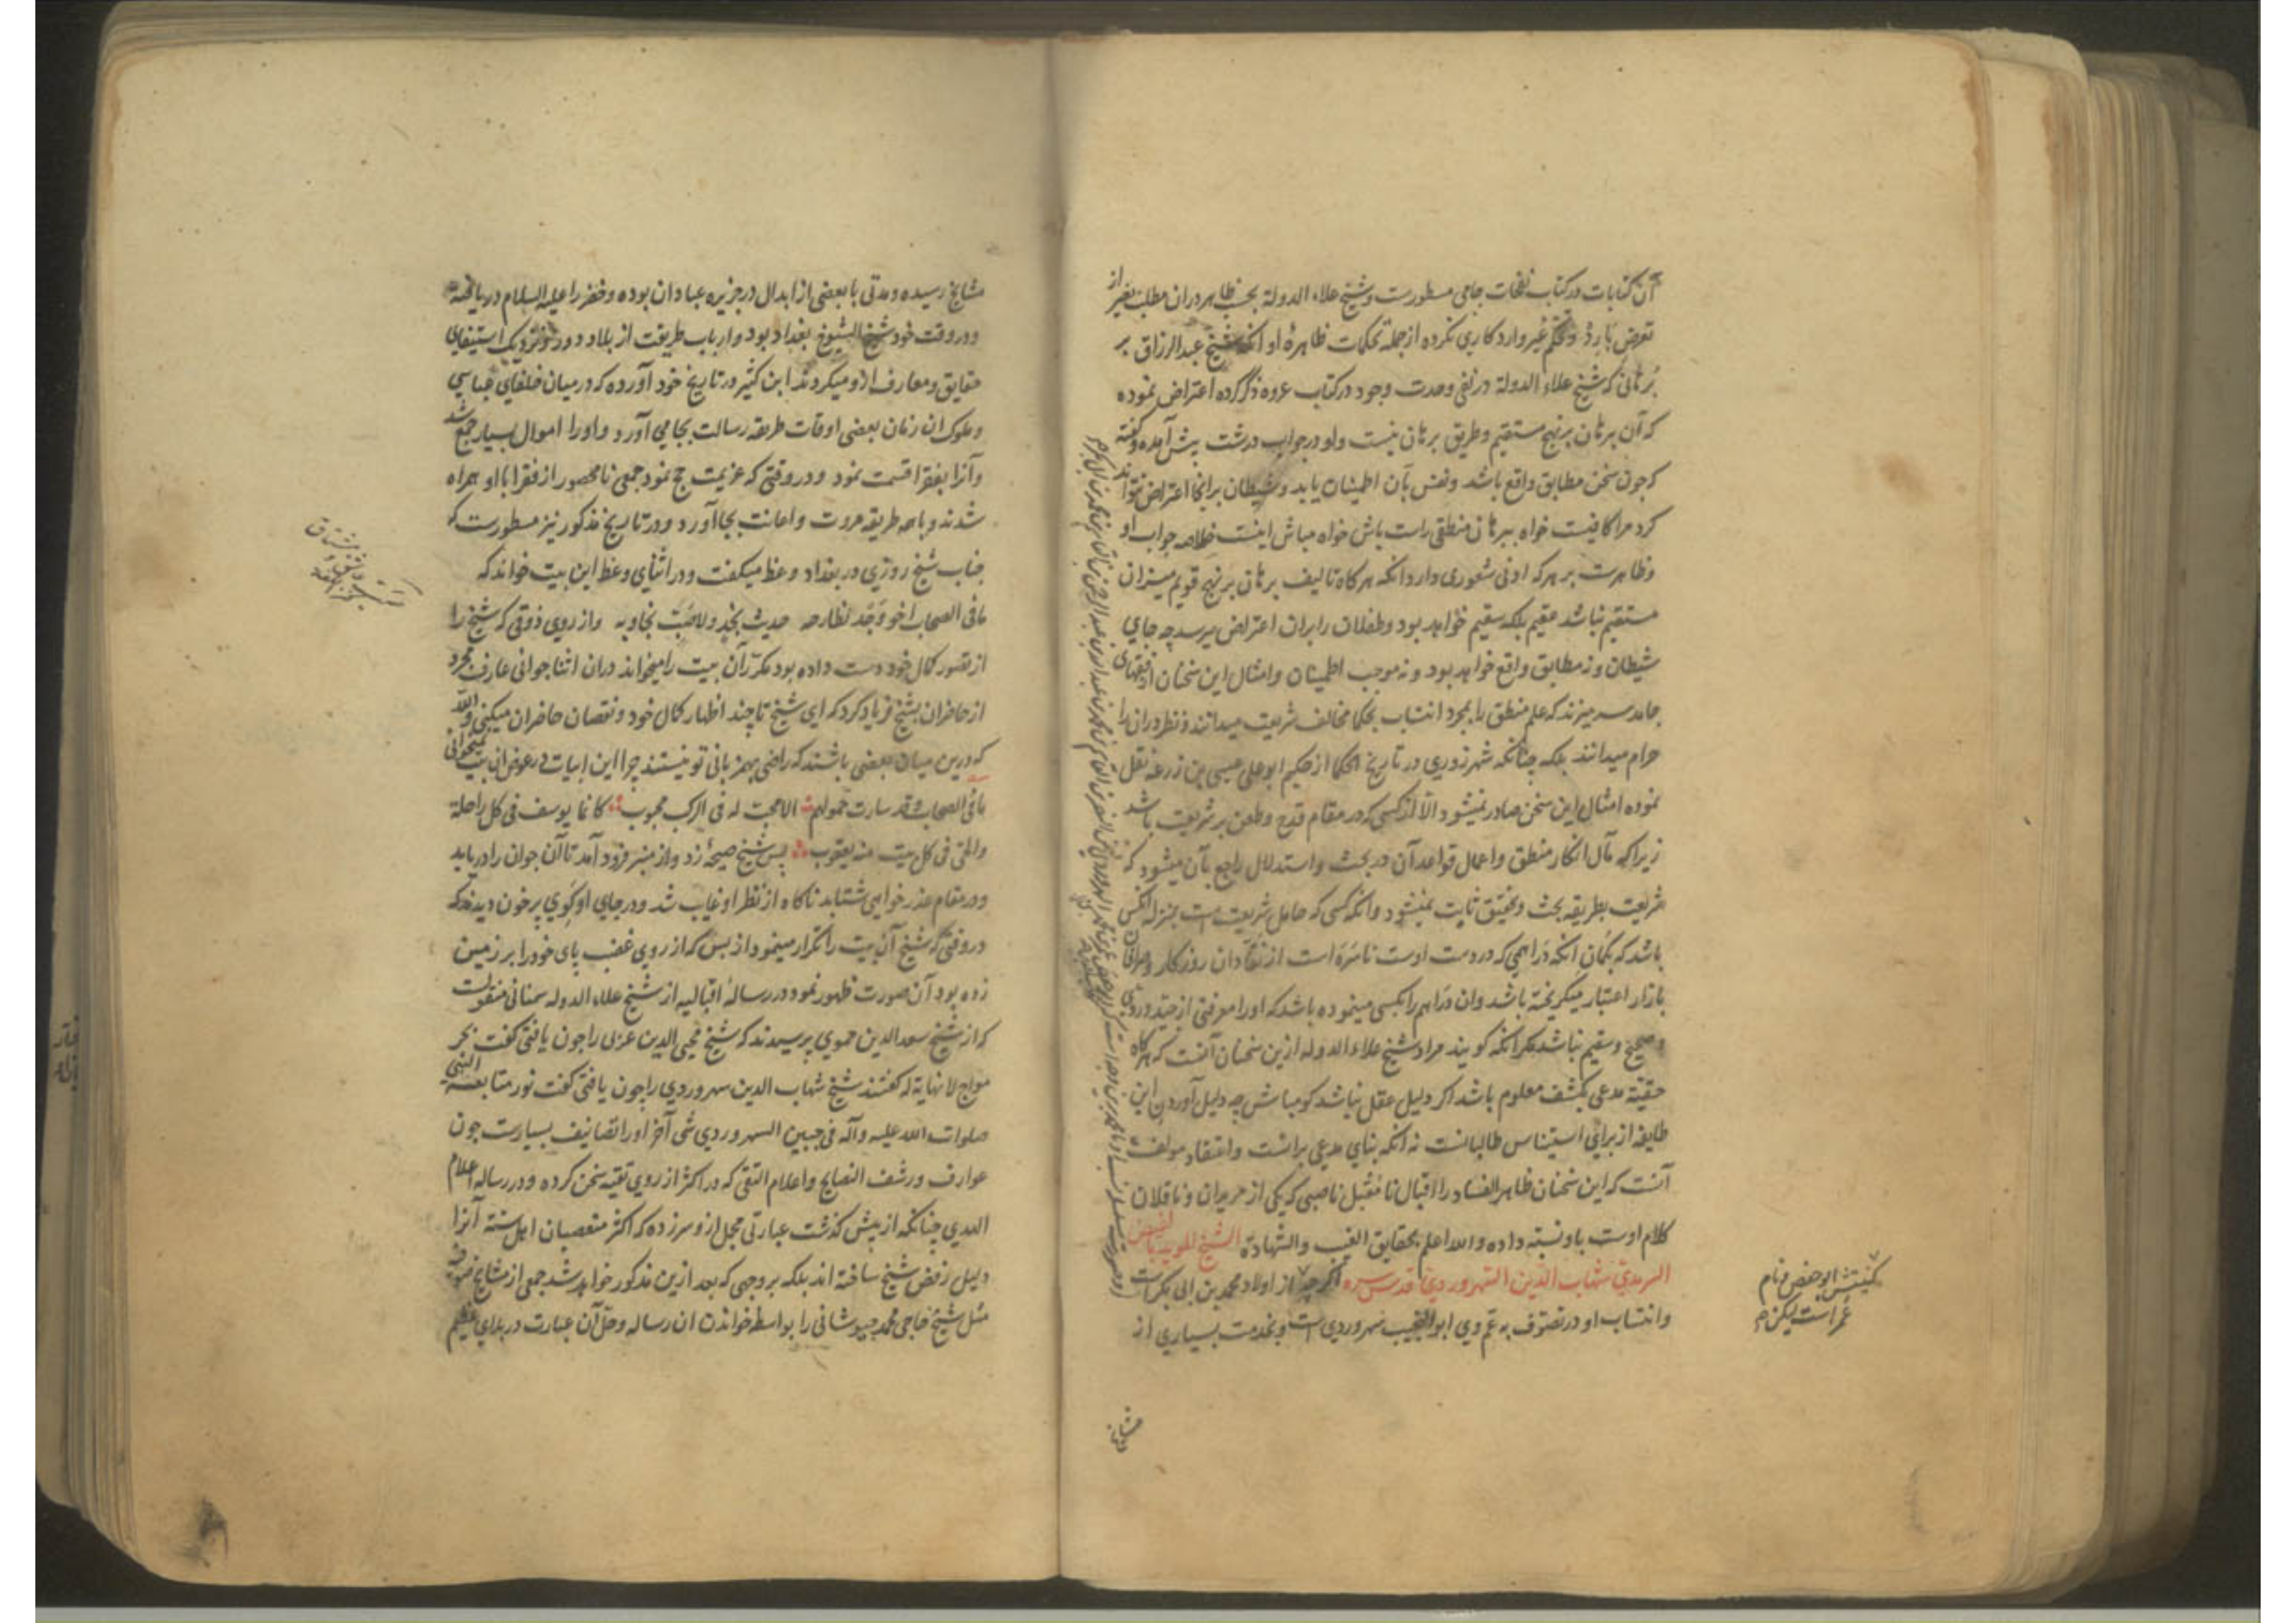 آن کتابات در کتاب نفحات جامی مسطورست و شیخ علاء الدولة بحسب ظاهر دران مطلب بغیر از
تعرض بارد و تحکم غیر وارد کاری نکرده از جملهٔ تحکمات ظاهرهٔ او آنکه شیخ عبد الرزاق بر
برهانی که شیخ علاء الدولة در نفی وحدت وجود در کتاب عروه ذکر کرده اعتراض نموده
که آن برهان بر نهج مستقیم و طریق برهان نیست و او در جواب درشت پیش آمده و گفته
که چون سخن مطابق واقع باشد و نفس بآن اطمینان یابد و شیطان برانجا اعتراض نتواند
کرد مرا کافیست خواه ببرهان منطقی راست باش خواه مباش اینست خلاصه جواب او
و ظاهرست بر هر که ادنی شعوری دارد انکه هرکاه تالیف برهان بر نهج قویم میزان
مستقیم نباشد عقیم بلکه سقیم خواهد بود و طفلان را بران اعتراض میرسد چه جای
شیطان و نه مطابق واقع خواهد بود و نه موجب اطمینان و امثال این سخنان از فقهای
جامد سر میزند که علم منطق را بمجرد انتساب بحکما مخالف شریعت میدانند و نظر دران را
حرام میدانند بلکه چنانکه شهرزوری در تاریخ الحکما از حکیم ابو علی عیسی بن زرعه نقل
نموده امثال این سخن صادر نمیشود الّا از کسی که در مقام قدح و طعن بر شریعت باشد
زیرا که مآل انکار منطق و اعمال قواعد آن در بحث و استدلال راجع بآن میشود که
شریعت بطریقه بحث و تحقیق ثابت نمیشود و انکه کسی که حامل شریعت است بمنزله انکس
باشد که بگمان انکه دراهمی که در دست اوست ناسره است از نقادان روزکار و صرافان
بازار اعتبار میکریخته باشد و ان دراهم را بکسی مینموده باشد که او را معرفتی از جید و ردی
و صحیح و سقیم نباشد مکر انکه کویند مراد شیخ علاء الدوله ازین سخنان آنست که هرکاه
حقیته مدعی بکشف معلوم باشد اکر دلیل عقل نباشد کو مباش چه دلیل آوردن این
طایفه از برای استیناس طالبانست نه انکه بنای مدعی برانست و اعتقاد مولف
آنست که این سخنان ظاهر الفساد را اقبال نا مقبل ناصبی که یکی از مریدان و ناقلان
کلام اوست باو نسبته داده والله اعلم بحقایق الغیب والشهادة الشیخ المؤید بالفیض
السرمدی شهاب الدین السهروردی قدس سره اکرچه از اولاد محمد بن ابی بکرست
و انتساب او در تصوف به عم وی ابو النجیب سهروردی است و بخدمت بسیاری از
کنیتش ابو حفص و نام
عمر است لیکن
مشایخ رسیده و مدتی با بعضی از ابدال در جزیره عبادان بوده و خضر را علیه السلام دریافته
و در وقت خود شیخ الشیوخ بغداد بود و ارباب طریقت از بلاد دور و نزدیک استیفای
حقایق و معارف ازو میکردند ابن کثیر در تاریخ خود آورده که در میان خلفای عباسی
و ملوک ان زمان بعضی اوقات طریقه رسالت بجا می آورد و او را اموال بسیار جمع شد
و آنرا بفقرا قسمت نمود و در وقتی که عزیمت حج نمود جمعی نا محصور از فقرا با او همراه
شدند و با همه طریقه مروت و اعانت بجا آورد و در تاریخ مذکور نیز مسطورست که
جناب شیخ روزی در بغداد وعظ میکفت و در اثنای وعظ این بیت خواند که
ما فی الصحاب اخو وجد نطارحه حدیث نجد ولا صب نجاریه و از روی ذوقی که شیخ را
از تصور کمال خود دست داده بود مکرر آن بیت را میخواند دران اثنا جوانی عارف مجرد
از حاضران بشیخ فریاد کرد که ای شیخ تا چند اظهار کمال خود و نقصان حاضران میکنی والله
که درین میان بعضی باشند که راضی بهمزبانی تو نیستند چرا این ابیات در عوض ان بیت نمیخوانی
ما فی الصحاب وقد سارت حمولهم الا محب له فی الرکب محبوب کانما یوسف فی کل راحلة
والحی فی کل بیت منه یعقوب پس شیخ صیحهٔ زد و از منبر فرود آمد تا آن جوان را دریابد
و در مقام عذر خواهی شتابد ناکاه از نظر او غایب شد و در جای او کوی پر خون دیدند که
در وقتی که شیخ آن بیت را تکرار مینمود از بس که از روی غضب پای خود را بر زمین
زده بود آن صورت ظهور نمود در رسالهٔ اقبالیه از شیخ علاء الدوله سمنانی منقولست
که از شیخ سعد الدین حموی پرسیدند که شیخ محیی الدین عربی را چون یافتی کفت بحر
مواج لا نهایة له کفتند شیخ شهاب الدین سهروردی را چون یافتی کفت نور متابعة النبی
صلوات الله علیه وآله فی جبین السهروردی شی آخر او را تصانیف بسیارست چون
عوارف و رشف النصایح و اعلام التقی که در اکثر از روی تقیه سخن کرده و در رساله اعلام
الهدی چنانکه از پیش کذشت عبارتی مجمل ازو سر زده که اکثر متعصبان اهل سنة آنرا
دلیل رفض شیخ ساخته اند بلکه بر وجهی که بعد ازین مذکور خواهد شد جمعی از مشایخ صوفیه
مثل شیخ حاجی محمد خبوشانی را بواسطه خواندن ان رساله و حل آن عبارت در بلای عظیم